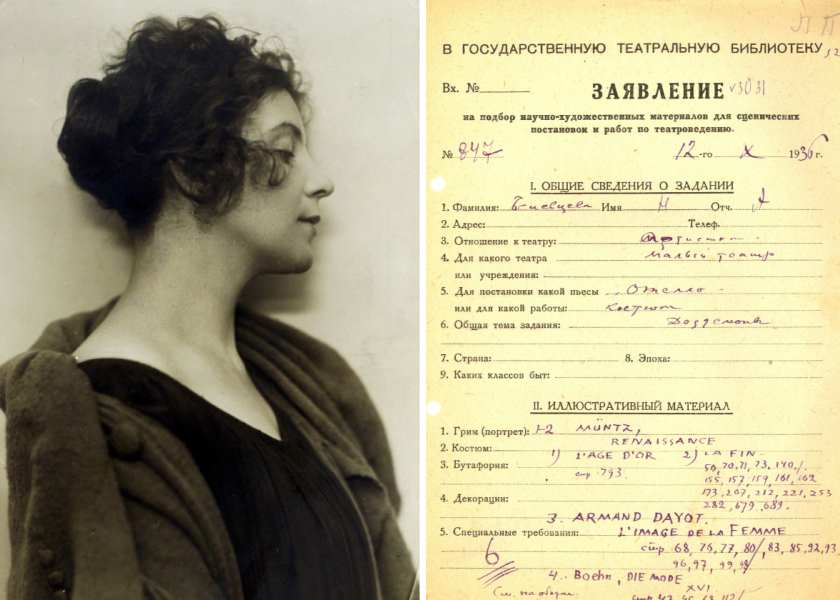 В ГОСУДАРСТВЕННУЮ ТЕАТРАЛЬНУЮ БИБЛИОТЕКУ
Вх. №
ЗАЯВЛЕНИЕ
на подбор научно-художественных материалов для сценических
постановок и работ по театроведению.
№ 847 12-го X 1936 г.
I. ОБЩИЕ СВЕДЕНИЯ О ЗАДАНИИ
1. Фамилия: Имя Н Отч. А
2. Адрес: Телеф.
3. Отношение к театру: Артистка
4. Для какого театра Малый театр
или учреждения:
5. Для постановки какой пьесы Отелло
или для какой работы: костюм
6. Общая тема задания: Дездемона
7. Страна: 8. Эпоха:
9. Каких классов быт:
II. ИЛЛЮСТРАТИВНЫЙ МАТЕРИАЛ
1. Грим (портрет): 1-2 MÜNTZ,
2. Костюм: RENAISSANCE
3. Бутафория: 1) L'AGE D'OR 2) LA FIN
стр. 793. 50, 70, 71, 73, 140,
155, 157, 159, 161, 162
4. Декорации: 173, 207, 212, 221, 253
282, 679, 689.
3. ARMAND DAYOT.
5. Специальные требования: L'IMAGE DE LA FEMME
6 стр. 68, 76, 77, 80, 83, 85, 92, 93,
96, 97, 99,
4. Boehn, DIE MODE
XVI
(См. на обор.